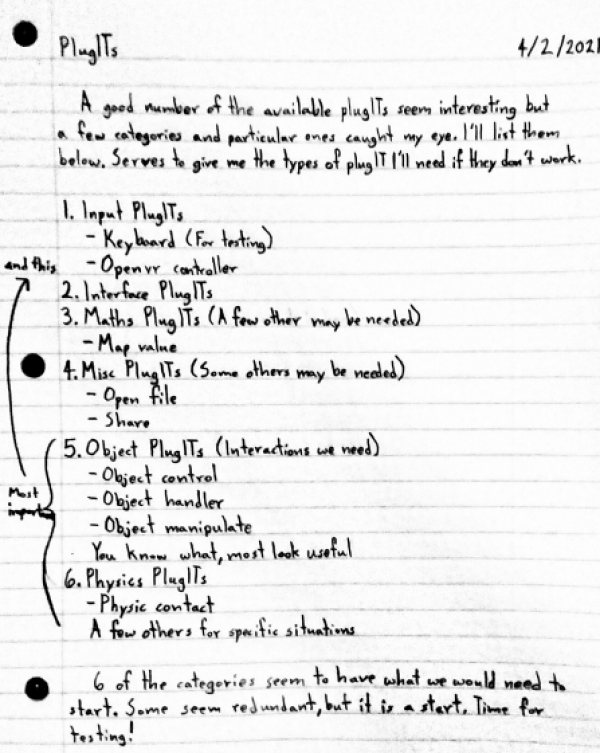 PlugITs 4/2/2021
A good number of the available plugITs seem interesting but
a few categories and particular ones caught my eye. I'll list them
below. Serves to give me the types of plugIT I'll need if they don't work.
1. Input PlugITs
- Keyboard (For testing)
and this - Openvr controller
2. Interface PlugITs
3. Maths PlugITs (A few other may be needed)
- Map value
4. Misc PlugITs (Some others may be needed)
- Open file
- Share
5. Object PlugITs (Interactions we need)
- Object control
Most - Object handler
- Object manipulate
You know what, most look useful
6. Physics PlugITs
- Physic contact
A few others for specific situations
6 of the categories seem to have what we would need to
start. Some seem redundant, but it is a start. Time for
testing!